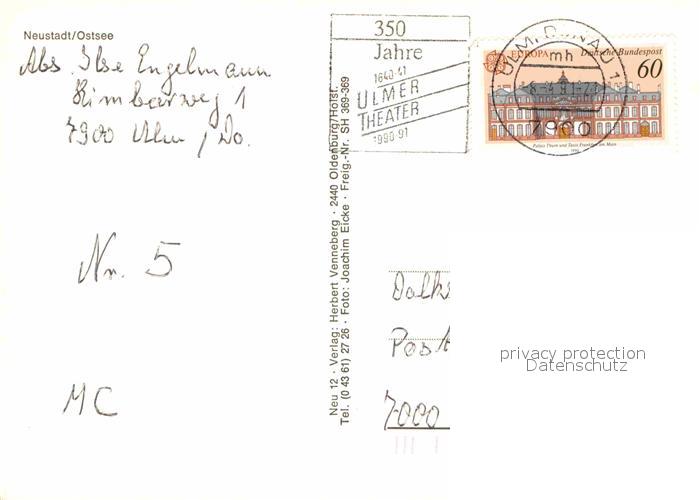 Neustadt/Ostsee
Abs. Ilse Engelmann
7900 Ulm / Do.
Nr. 5
MC
Neu 12 · Verlag: Herbert Venneberg · 2440 Oldenburg/Holst.
Tel. (0 43 61) 27 26 · Foto: Joachim Eicke · Freig.-Nr. SH 369-369
350
Jahre
1640-41
ULMER
THEATER
1990-91
ULM, DONAU 1
mh
7900
EUROPA Deutsche Bundespost
60
Palais Thurn und Taxis Frankfurt am Main
1990
Post
7000
privacy protection
Datenschutz